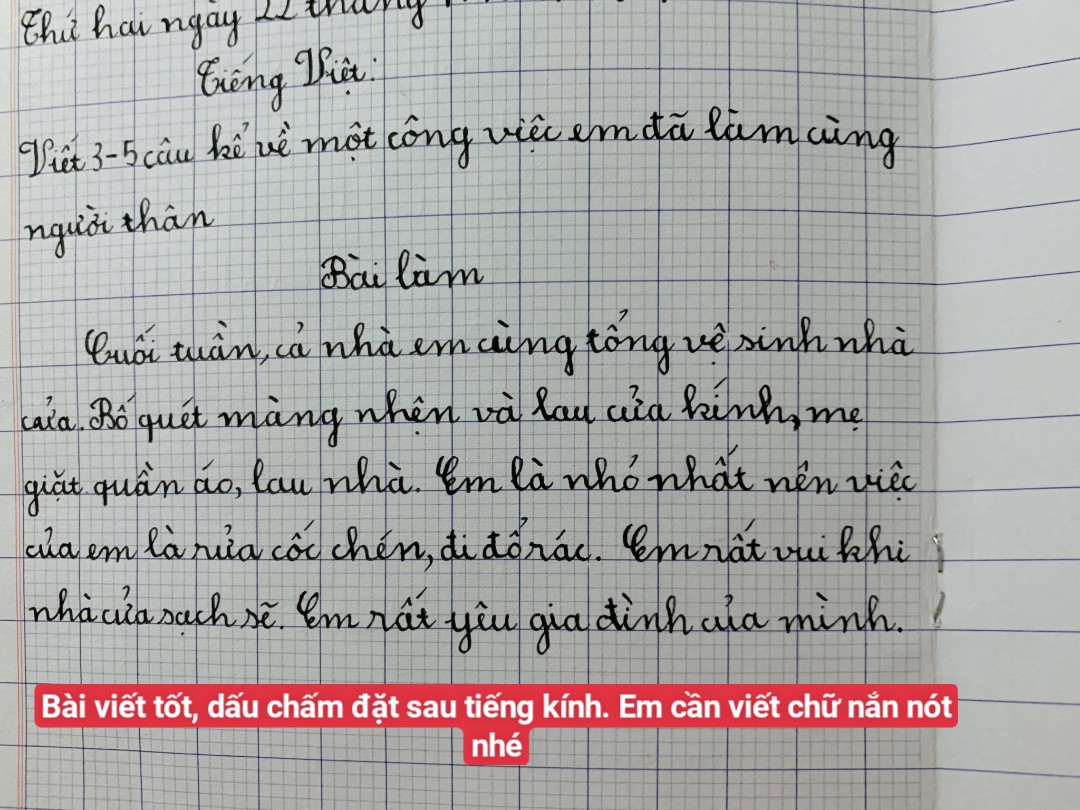 Thứ hai ngày 22 tháng
Tiếng Việt:
Viết 3-5 câu kể về một công việc em đã làm cùng
người thân
Bài làm
Cuối tuần, cả nhà em cùng tổng vệ sinh nhà
cửa. Bố quét màng nhện và lau cửa kính, mẹ
giặt quần áo, lau nhà. Em là nhỏ nhất nên việc
của em là rửa cốc chén, đi đổ rác. Em rất vui khi
nhà cửa sạch sẽ. Em rất yêu gia đình của mình.
Bài viết tốt, dấu chấm đặt sau tiếng kính. Em cần viết chữ nắn nót
nhé